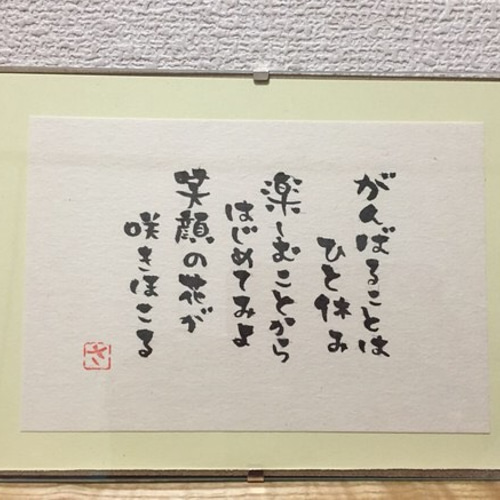 がんばることは
ひと休み
楽しむことから
はじめてみよ
笑顔の花が
咲きほこる
さ